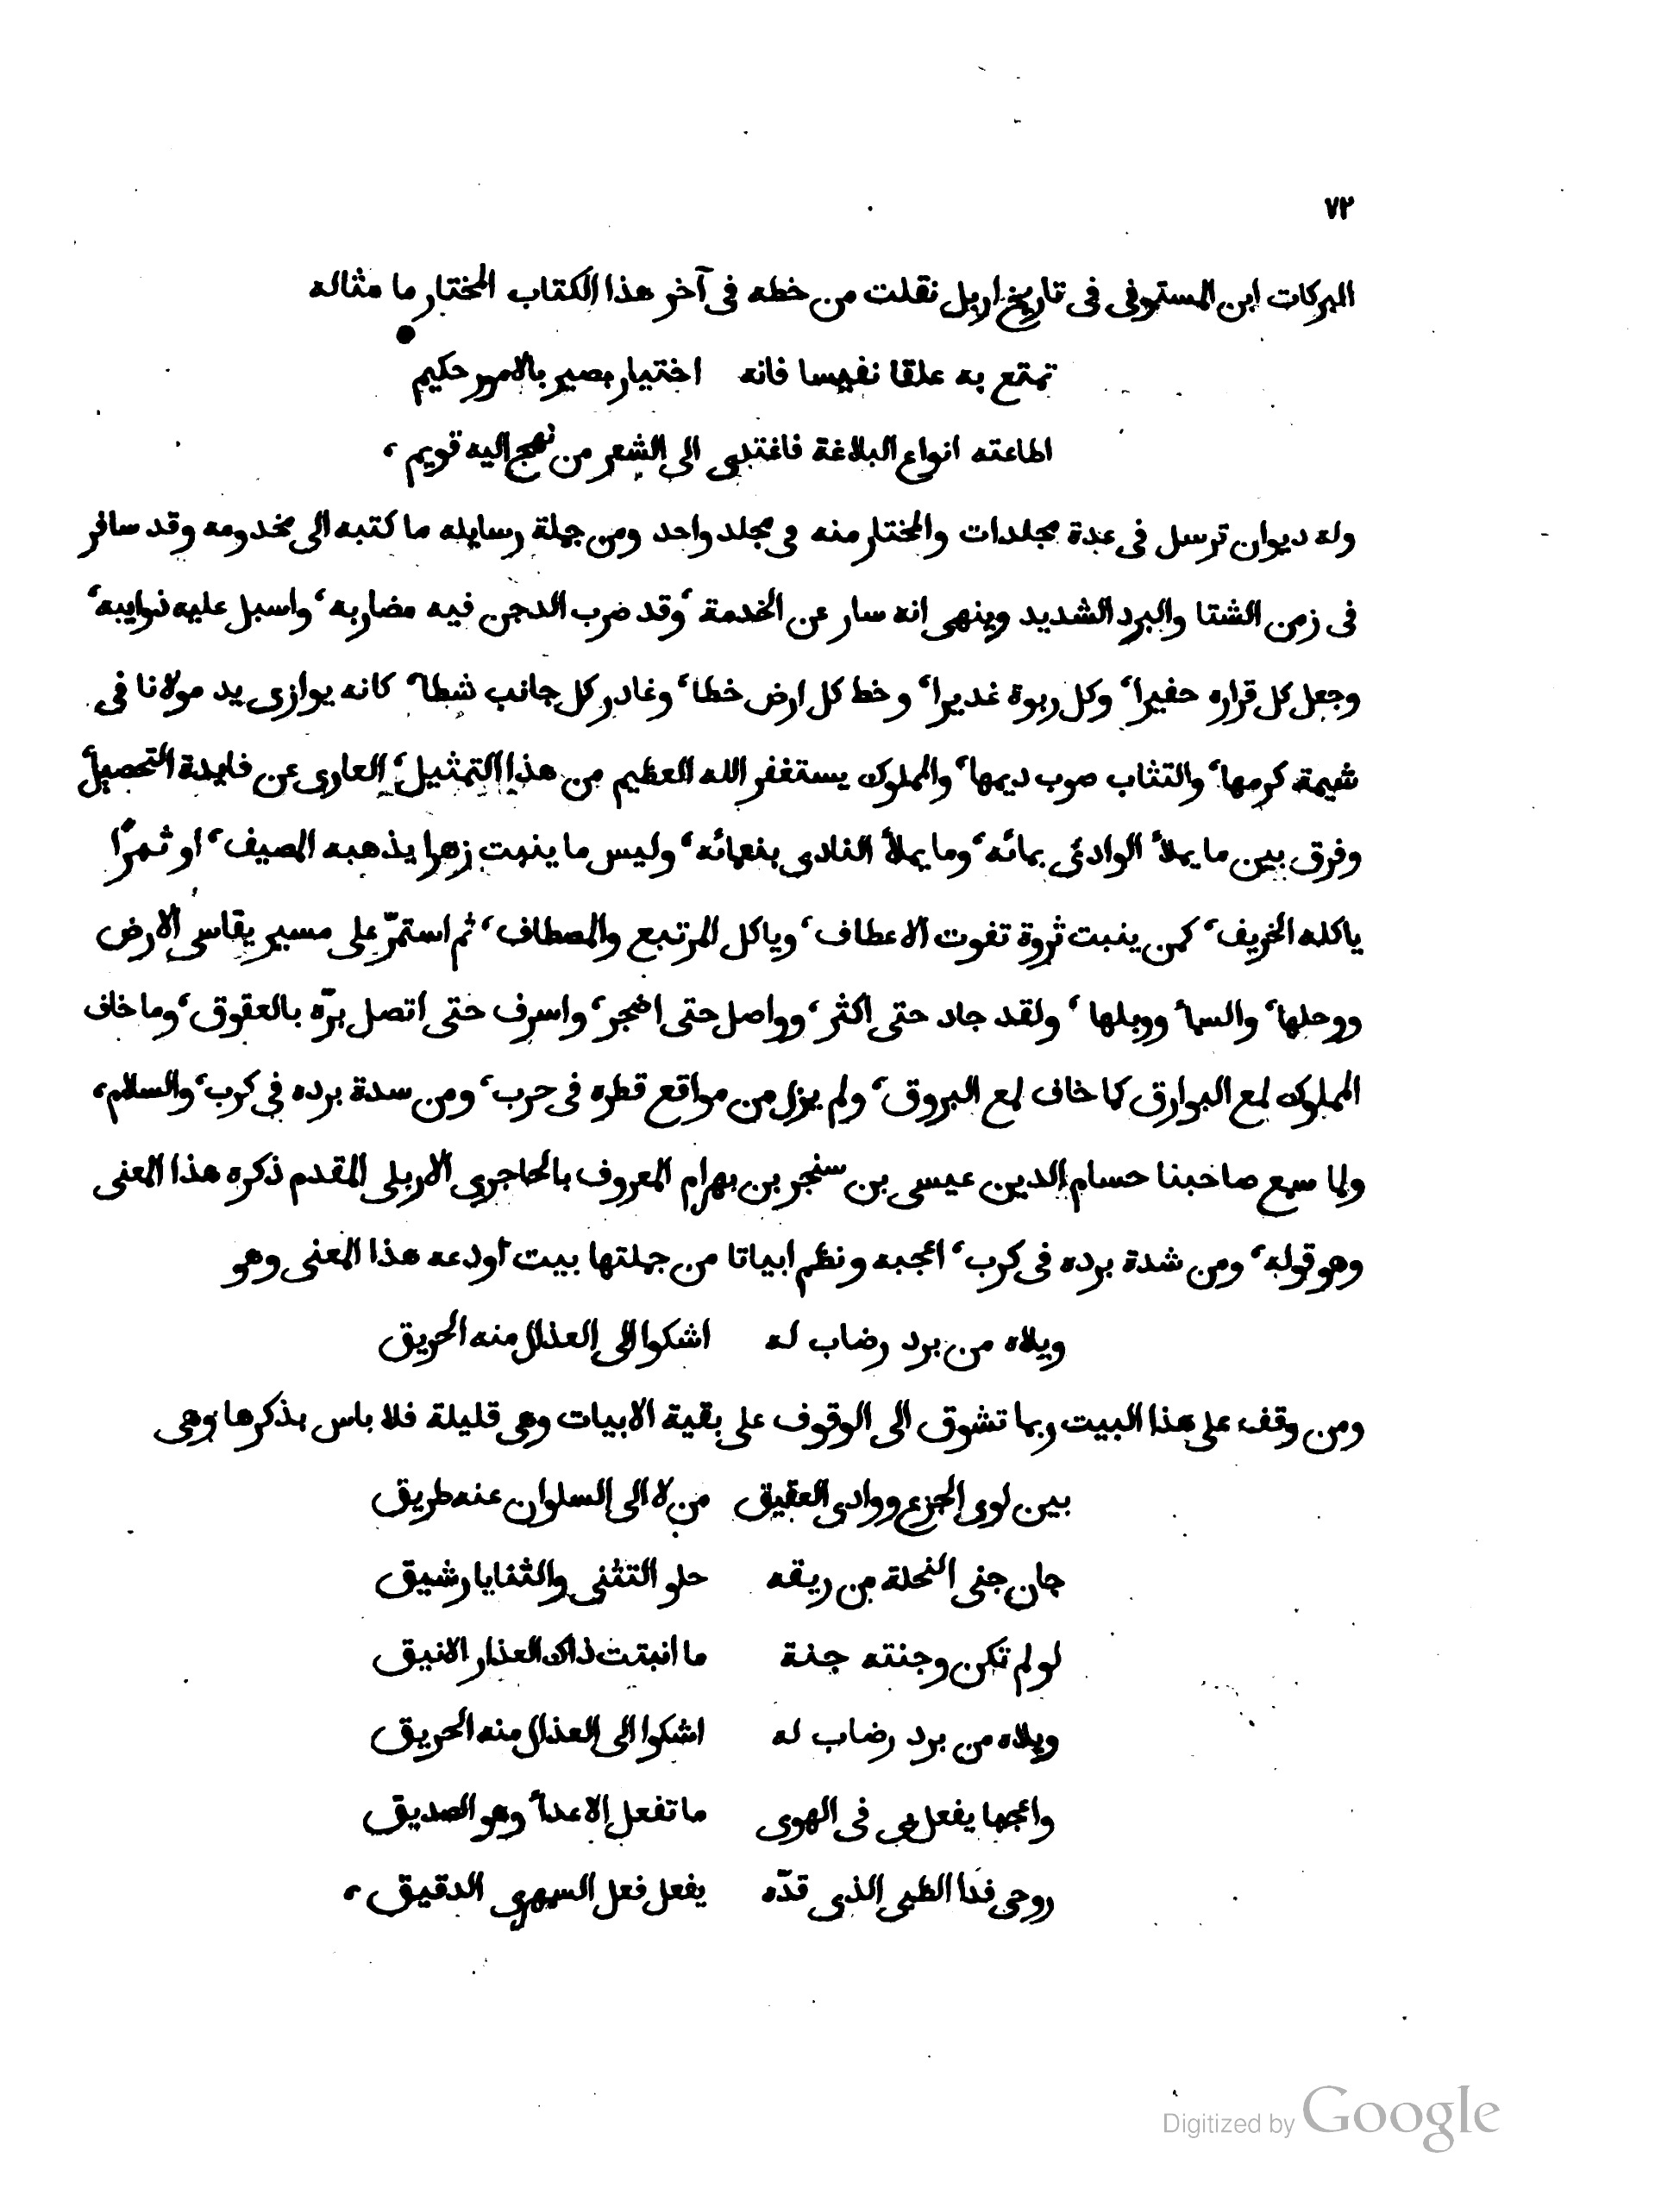 ٧٢
البركات ابن المستوفى فى تاريخ اربل نقلت من خطه فى آخر هذا الكتاب المختار ما مثاله
تمتع به علقا نفيسا فانه اختيار بصير بالامور حكيم
اطاعته انواع البلاغة فاغتدى الى الشعر من نهج اليه قويم ،
وله ديوان ترسل فى عدة مجلدات والمختار منه فى مجلد واحد ومن جملة رسايله ما كتبه الى مخدومه وقد سافر
فى زمن الشتا والبرد الشديد وينهى انه سار عن الخدمة ، وقد ضرب الدجن فيه مضاربه ، واسبل عليه ذوايبه ،
وجعل كل قراره حفيرا ، وكل ربوة غديرا ، وخط كل ارض خطا ، وغادر كل جانب شطا ، كانه يوازى يد مولانا فى
شيمة كرمها ، والتثاب صوب ديمها ، والمملوك يستغفر الله العظيم من هذا التمثيل ، العارى عن فايدة التحصيل ،
وفرق بين ما يملأ الوادى بمائه ، وما يملأ النادى بنعمائه ، وليس ما ينبت زهرا يذهبه المصيف ، او ثمرًا
ياكله الخريف ، كمن ينبت ثروة تفوت الاعطاف ، وياكل المرتبع والمصطاف ، ثم استمرّ على مسير يقاسى الارض
ووحلها ، والسمآ ووبلها ، ولقد جاد حتى اكثر ، وواصل حتى اضجر ، واسرف حتى اتصل برّه بالعقوق ، وما خاف
المملوك لمع البوارق كما خاف لمع البروق ، ولم يزل من مواقع قطره فى حرب ، ومن سدة برده فى كرب ، والسلام ،
ولما سمع صاحبنا حسام الدين عيسى بن سنجر بن بهرام المعروف بالحاجرى الاربلى المقدم ذكره هذا المعنى
وهو قوله ، ومن شدة برده فى كرب ، اعجبه ونظم ابياتا من جملتها بيت أودعه هذا المعنى وهو
ويلاه من برد رضاب له اشكوا الى العذال منه الحريق
ومن وقف على هذا البيت ربما تشوق الى الوقوف على بقية الابيات وهى قليلة فلا باس بذكرها وهى
بين لوى الجزع ووادى العقيق من لا الى السلوان عنه طريق
جان جنى النحلة من ريقه حلو التثنى والثنايا رشيق
لو لم تكن وجنته جنة ما انبتت ذاك العذار الانيق
ويلاه من برد رضاب له اشكوا الى العذال منه الحريق
واعجبا يفعل بى فى الهوى ما تفعل الاعدآ وهو الصديق
روحى فدا الظبى الذى قدّه يفعل فعل السمهرى الدقيق ،
Digitized by Google